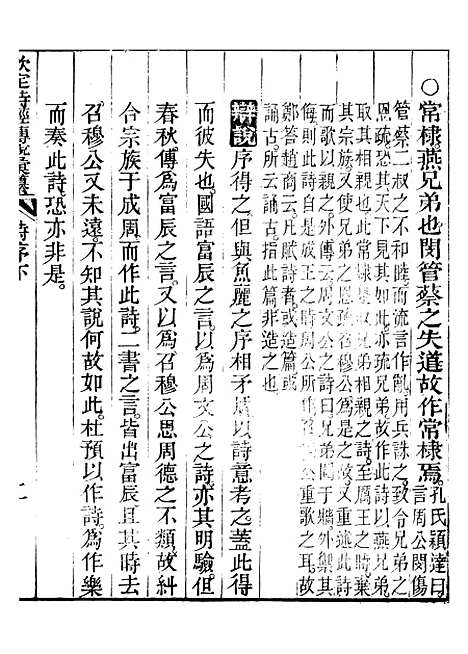 ○常棣燕兄弟也閔管蔡之失道故作常棣焉孔氏穎達曰
言周公閔傷
管蔡二叔之不和睦而流言作亂用兵誅之致令兄弟之
恩疏恐其天下見其如此亦疏兄弟故作此詩以燕兄弟
取其相親也此常棣是取兄弟相親之詩至厲王之時棄
其宗族又使兄弟之恩疏召穆公為是之故又重述此詩
而歌以親之外傳云周文公之詩曰兄弟䦧于牆外禦其
侮則此詩自是成王之時周公所作召穆公重歌之耳故
鄭答趙商云凡賦詩者或造篇或
誦古所云誦古指此篇非造之也
辯說序得之但與魚麗之序相矛盾以詩意考之蓋此得
而彼失也國語富辰之言以為周文公之詩亦其明驗但
春秋傳為富辰之言又以為召穆公思周德之不類故糾
合宗族于成周而作此詩二書之言皆出富辰且其時去
召穆公又未遠不知其說何故如此杜預以作詩為作樂
而奏此詩恐亦非是
欽定詩經傳說彙纂 詩序下